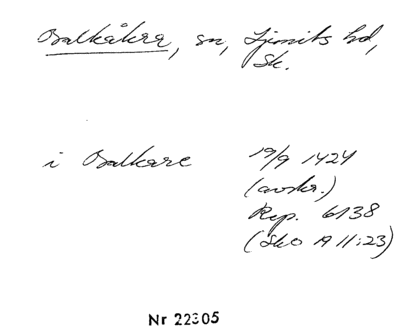 Balkåkra, sn, Ljunits hd,
Sk.
i Balkare 19/9 1424
(avskr.)
Rep. 6138
(SkO A 11:23)
Nr 22305